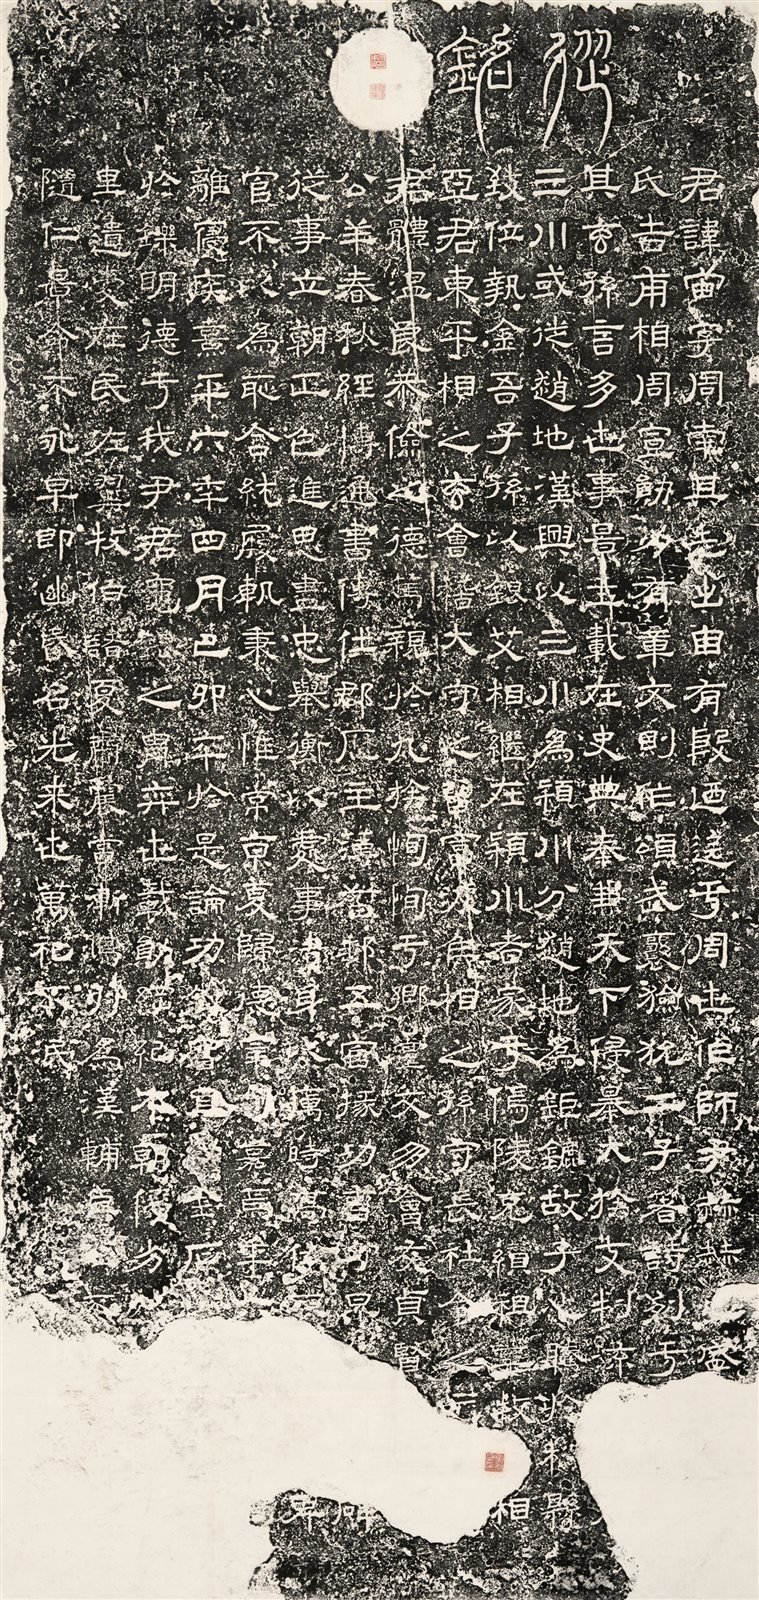 從銘
君諱宙字周南其先出自有殷迺迄于周世作師尹赫赫之盛
氏吉甫相周宣勛力有章文則作頌武襄獫狁二子著詩列于
其玄孫言多世事景王載在史典秦兼天下侵暴大族支判流
三川或徙趙地漢興以三川為潁川分趙地為鉅鐮故子心騰於楊縣
致位執金吾子孫以銀艾相繼在潁川者家于傿陵克纘祖業牧相
亞君東平相之玄會稽大守之曾富波侯相之孫守長社令之元
君體溫良恭儉之德篤親於九族恂恂于鄉黨交朋會友貞賢
公羊春秋經博通書傳仕郡歷主簿督郵五官掾功曹守昆辟
從事立朝正色進思盡忠舉衡以處事清身以厲時高位不卑
官不以為恥含純履軌秉心惟常京夏歸德宰司嘉焉年六
離寢疾熹平六年四月己卯卒於是論功敘實宜勒金石
於鑠明德于我尹君龜銀之冑弈世載勛綱紀本朝優劣殊
里遺愛在民佐翼牧伯諸夏肅震當漸鴻羽為漢輔臣位不
隨仁景命不永早即幽昏名光來世萬祀不泯